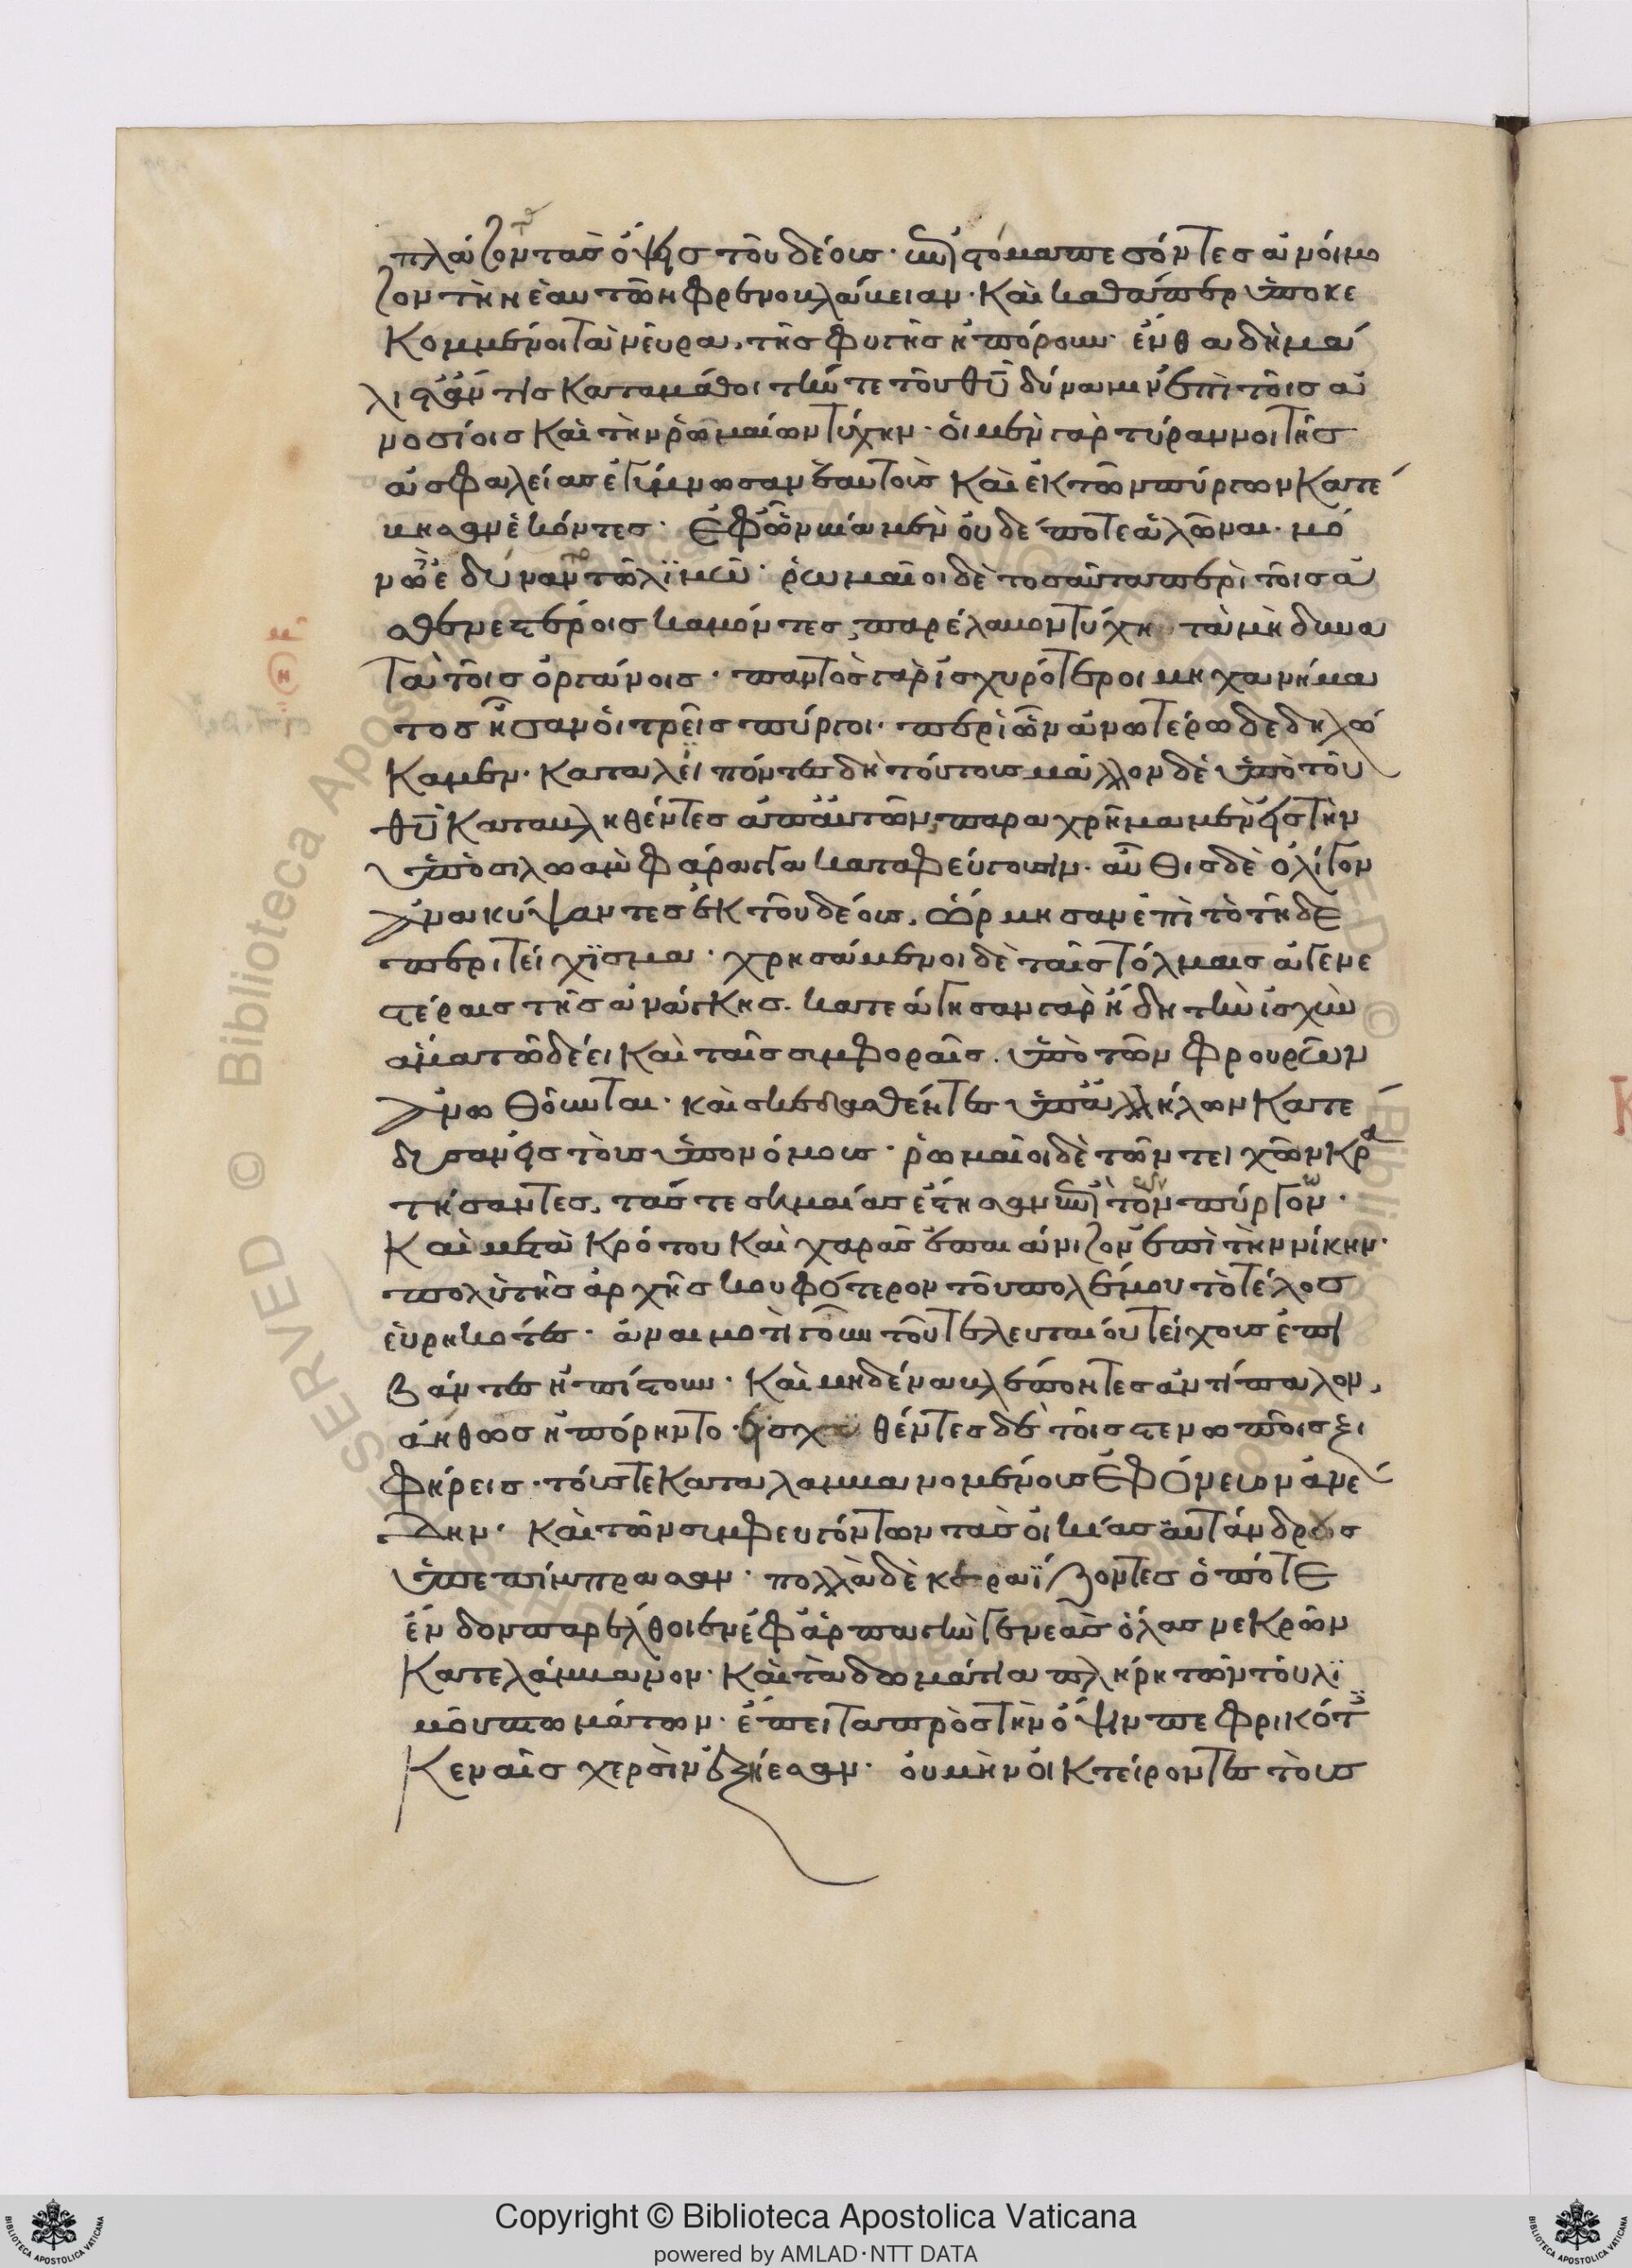 πλάζοντας ὄψεις τοῦ δέους· ἐπὶ στόμα πεσόντες ἀνοίμω
ζον τὴν ἑαυτῶν φρενοβλάβειαν· καὶ καθάπερ ὑποκε
κομμένοι τὰ νεῦρα, τῆς φυγῆς ἠπόρουν· ἔνθα δὴ μά
λιστ' ἄν τις καταμάθοι τήν τε τοῦ θῦ δύναμιν ἐπὶ τοῖς ἀ
νοσίοις καὶ τὴν ῥωμαίων τύχην· οἱ μὲν γὰρ τύραννοι τῆς
ἀσφαλείας ἐγύμνωσαν ἑαυτοὺς καὶ ἐκ τῶν πύργων κατέ
βησαν ἑκόντες· ἐφ' ὧν βία μὲν οὐδέποτε ἁλῶναι· μό
νῳ δ' ἐδύναντο λιμῷ· ῥωμαῖοι δὲ τοσαῦτα περὶ τοῖς ἀ
σθενεστέροις καμόντες, παρέλαβον τύχῃ τὰ μὴ δυνα
τὰ τοῖς ὀργάνοις· παντὸς γὰρ ἰσχυρότεροι μηχανήμα
τος ἦσαν οἱ τρεῖς πύργοι· περὶ ὧν ἀνωτέρω δεδηλώ
καμεν· καταλείποντες δὴ τούτους μᾶλλον δὲ ὑπὸ τοῦ
θῦ καταβληθέντες ἀπ' αὐτῶν, παραχρῆμα μὲν εἰς τὴν
ὑπὸ σιλωὰμ φάραγγα καταφεύγουσιν· αὖθις δὲ ὀλίγον
ἀνακύψαντες ἐκ τοῦ δέους, ὥρμησαν ἐπὶ τὸ τῇδε
περιτείχισμα· χρησάμενοι δὲ ταῖς τόλμαις ἀγενε
στέραις τῆς ἀνάγκης. κατεάγησαν γὰρ ἤδη τὴν ἰσχὺν
ἅμα τῷ δέει καὶ ταῖς συμφοραῖς. ὑπὸ τῶν φρουρῶν
ἀνωθοῦνται· καὶ σκεδασθέντες ὑπ' ἀλλήλων κατέ
δυσαν εἰς τοὺς ὑπονόμους· ῥωμαῖοι δὲ τῶν τειχῶν κρα
τήσαντες, τάς τε σημαίας ἔστησαν ἐπὶ τῶν πύργων·
καὶ μετὰ κρότου καὶ χαρᾶς ἐπαιάνιζον ἐπὶ τὴν νίκην·
πολὺ τῆς ἀρχῆς κουφότερον τοῦ πολέμου τὸ τέλος
εὑρηκότες· ἀναιμωτὶ γοῦν τοῦ τελευταίου τείχους ἐπι
βάντες ἠπίστουν· καὶ μηδένα βλέποντες ἀντίπαλον,
ἀήθως ἠπόρηντο· εἰσχυθέντες δὲ τοῖς στενωποῖς ξι
φήρεις· τούς τε καταλαμβανομένους ἐφόνευον ἀνέ
δην· καὶ τῶν συμφευγόντων τὰς οἰκίας αὐτάνδρους
ὑπεπίμπρασαν· πολλὰ δὲ κεραΐζοντες ὁπότε
ἔνδον παρέλθοιεν ἐφ' ἁρπαγὴν γενεὰς ὅλας νεκρῶν
κατελάμβανον· καὶ τὰ δωμάτια πλήρη τῶν τοῦ λι
μοῦ πτωμάτων· ἔπειτα πρὸς τὴν ὄψιν πεφρικότες
κεναῖς χερσὶν ἐξῄεσαν· οὐ μὴν οἰκτείροντες τοὺς
Copyright © Biblioteca Apostolica Vaticana
powered by AMLAD·NTT DATA